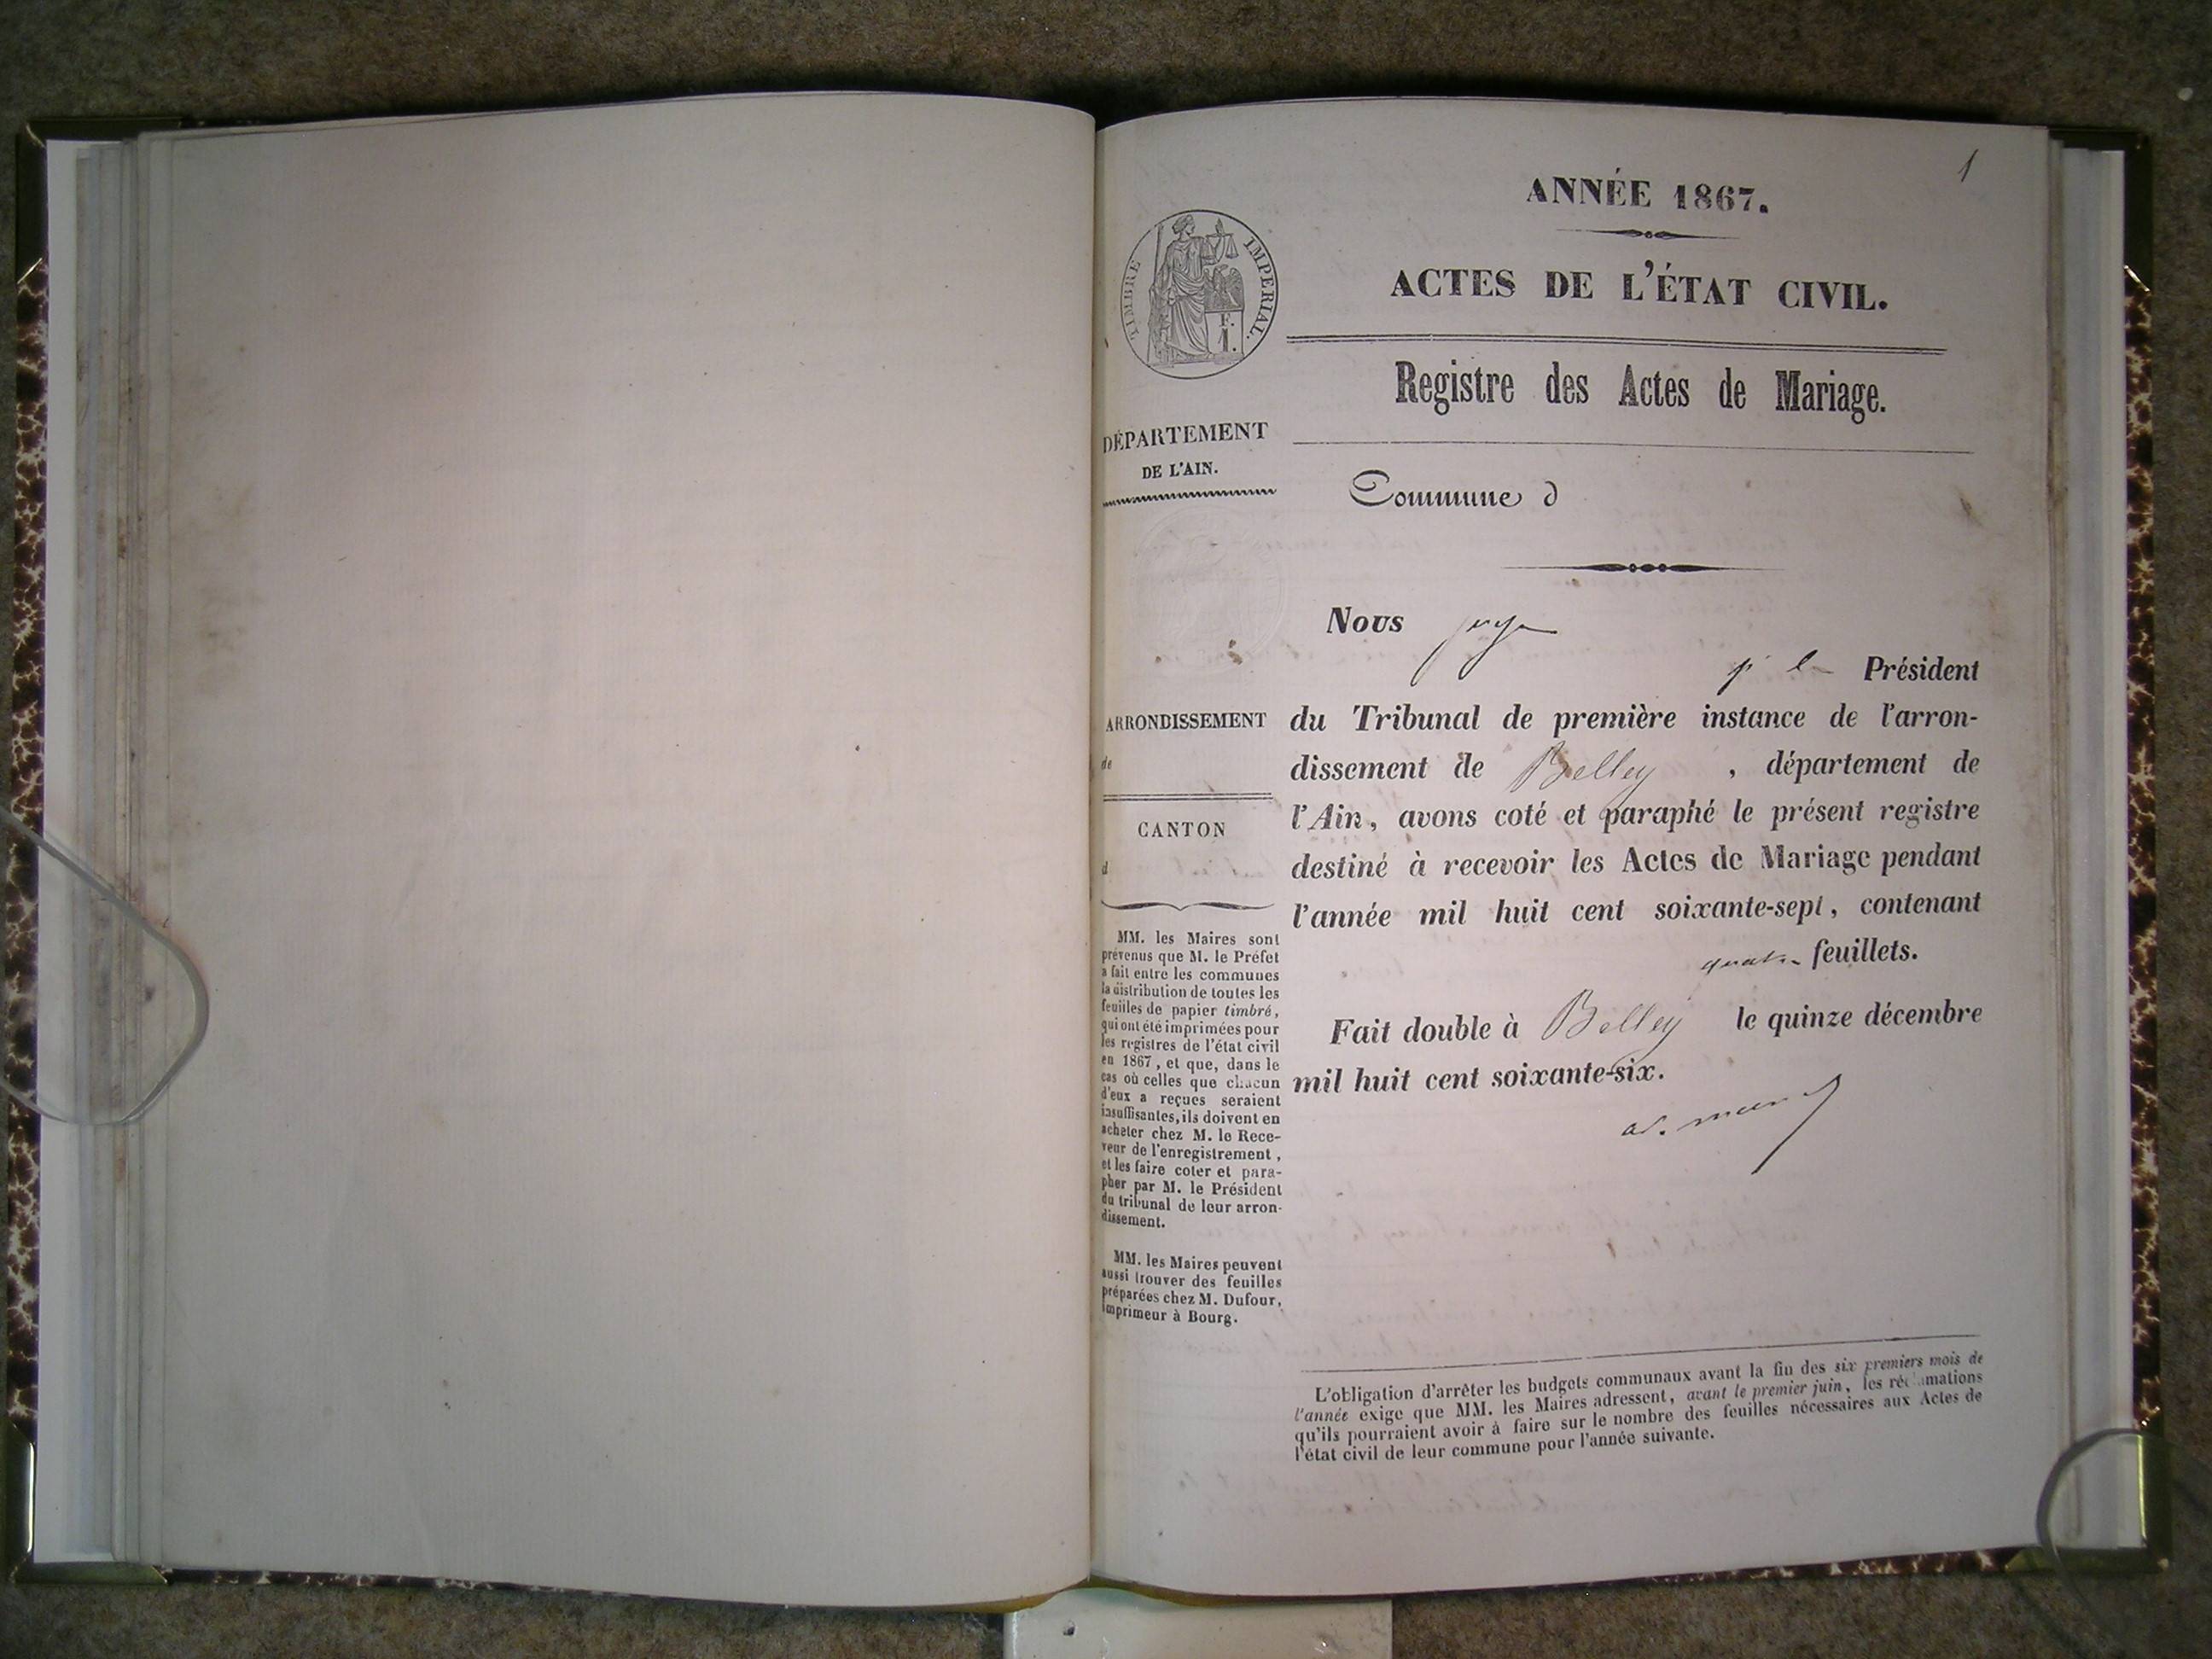 1
ANNÉE 1867.
ACTES DE L'ÉTAT CIVIL.
Registre des Actes de Mariage.
Commune d
TIMBRE IMPERIAL.
F.
1.
DÉPARTEMENT
DE L'AIN.
ARRONDISSEMENT
de
CANTON
d
MM. les Maires sont
prévenus que M. le Préfet
a fait entre les communes
la distribution de toutes les
feuilles de papier timbré,
qui ont été imprimées pour
les registres de l'état civil
en 1867, et que, dans le
cas où celles que chacun
d'eux a reçues seraient
insuffisantes, ils doivent en
acheter chez M. le Rece-
veur de l'enregistrement,
et les faire coter et para-
pher par M. le Président
du tribunal de leur arron-
dissement.
MM. les Maires peuvent
aussi trouver des feuilles
préparées chez M. Dufour,
imprimeur à Bourg.
Nous juge
pr le Président
du Tribunal de première instance de l'arron-
dissement de Belley, département de
l'Ain, avons coté et paraphé le présent registre
destiné à recevoir les Actes de Mariage pendant
l'année mil huit cent soixante-sept, contenant
quatre feuillets.
Fait double à Belley le quinze décembre
mil huit cent soixante-six.
L'obligation d'arrêter les budgets communaux avant la fin des six premiers mois de
l'année exige que MM. les Maires adressent, avant le premier juin, les réclamations
qu'ils pourraient avoir à faire sur le nombre des feuilles nécessaires aux Actes de
l'état civil de leur commune pour l'année suivante.